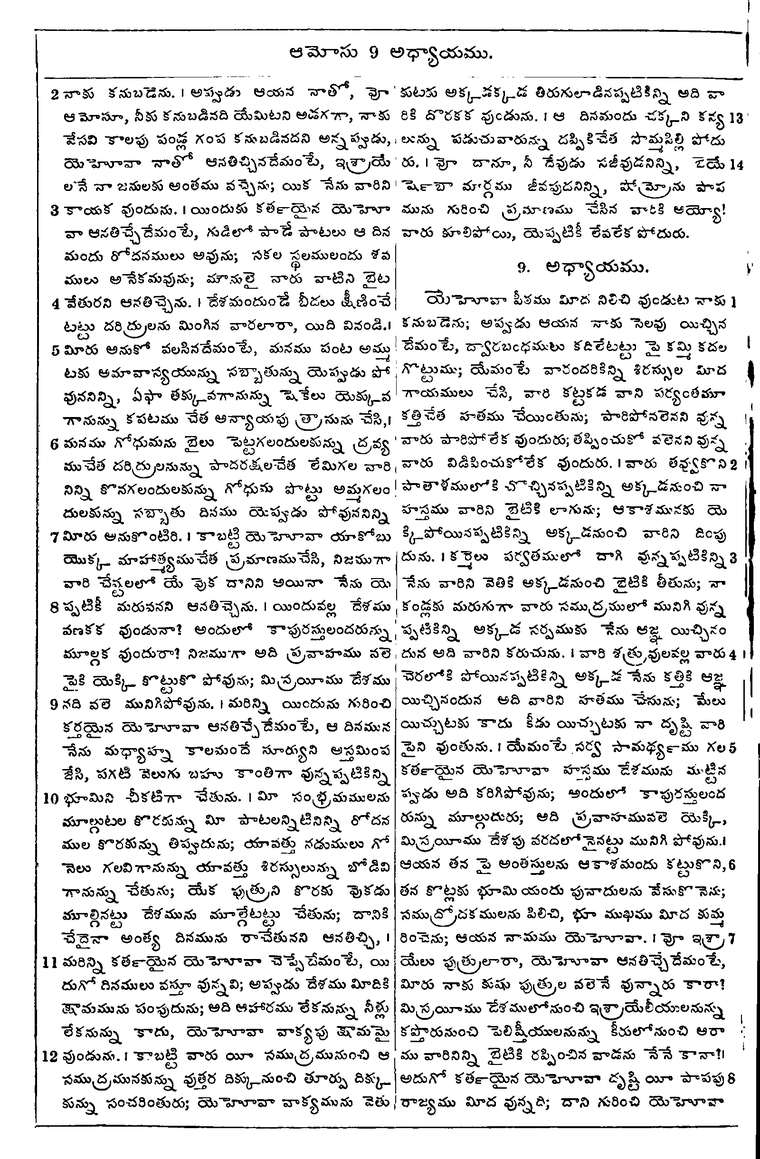 ఆమోసు 9 అధ్యాయము.
2 నాకు కనుబడెను. । అప్పుడు ఆయన నాతో, వో
ఆమోసూ, నీకు కనుబడినది యేమిటని అడగగా, నాకు
వేసవి కాలపు పండ్ల గంప కనుబడినదని అన్నప్పుడు,
యెహోవా నాతో ఆనతిచ్చినదేమంటే, ఇశ్రాయే
లనే నా జనులకు అంతము వచ్చెను; యిక నేను వారిని
3 కాయక వుందును. । యిందుకు కర్తయైన యెహో
వా ఆనతిచ్చేదేమంటే, గుడిలో పాడే పాటలు ఆ దిన
మందు రోదనములు అవును; సకల స్థలములందు శవ
ములు అనేకమవును; మౌనులై వారు వాటిని బైట
4 వేతురని ఆనతిచ్చెను. । దేశమందుండే బీదలు క్షీణించే
టట్టు దరిద్రులను మింగిన వారలారా, యిది వినండి. ।
5 మీరు అనుకో వలసినదేమంటే, మనము పంట అమ్ము
టకు అమావాస్యయున్ను సబ్బాతున్ను యెప్పుడు పో
వుననిన్ని, ఏఫా తక్కువగానున్ను షెకేలు యెక్కువ
గానున్ను కపటము చేత అన్యాయపు త్రాసును చేసి, ।
6 మనము గోధుమను బైలు పెట్టగలందులకున్ను ద్రవ్య
ముచేత దరిద్రులనున్ను పాదరక్షలచేత లేమిగల వారి
నిన్ని కొనగలందులకున్ను గోధుమ పొట్టు అమ్మగలం
దులకున్ను సబ్బాతు దినము యెప్పుడు పోవుననిన్ని
7 మీరు అనుకొంటిరి. । కాబట్టి యెహోవా యాకోబు
యొక్క మాహాత్మ్యముచేత ప్రమాణముచేసి, నిజముగా
వారి చేష్టలలో యే వొక దానిని అయినా నేను యె
8 ప్పటికీ మరువనని ఆనతిచ్చెను. । యిందువల్ల దేశము
వణకక వుండునా? అందులో కాపురస్తులందరున్ను
మూల్గక వుందురా? నిజముగా అది ప్రవాహము వలె
పైకి యెక్కి కొట్టుకొ పోవును; మిస్రయీము దేశము
9 నది వలె మునిగిపోవును. । మరిన్ని యిందును గురించి
కర్తయైన యెహోవా ఆనతిచ్చేదేమంటే, ఆ దినమున
నేను మధ్యాహ్న కాలమందే సూర్యుని అస్తమింప
జేసి, పగటి వెలుగు బహు కాంతిగా వున్నప్పటికిన్ని
10 భూమిని చీకటిగా చేతును. । మీ సంభ్రమములను
మూల్గుటల కొరకున్ను మీ పాటలన్నిటినిన్ని రోదన
ముల కొరకున్ను తిప్పుదును; యావత్తు నడుములు గో
నెలు గలవిగానున్ను యావత్తు శిరస్సులున్ను బోడివి
గానున్ను చేతును; యేక పుత్రుని కొరకు వొకడు
మూల్గినట్టు దేశమును మూల్గేటట్టు చేతును; దానికి
చేదైనా అంత్య దినమును రాచేతునని ఆనతిచ్చి, ।
11 మరిన్ని కర్తయైన యెహోవా చెప్పేదేమంటే, యి
దుగో దినములు వస్తూ వున్నవి; అప్పుడు దేశము మీదికి
క్షామమును పంపుదును; అది ఆహారము లేకనున్ను నీళ్లు
లేకనున్ను కాదు, యెహోవా వాక్యపు క్షామమై
12 వుండును. । కాబట్టి వారు యీ సముద్రమునుంచి ఆ
సముద్రమునకున్ను వుత్తర దిక్కునుంచి తూర్పు దిక్కు
కున్ను సంచరింతురు; యెహోవా వాక్యమును వెతు
కుటకు అక్కడక్కడ తిరుగులాడినప్పటికిన్ని అది వా
రికి దొరకక వుండును. । ఆ దినమందు చక్కని కన్య 13
లున్ను పడుచువారున్ను దప్పికిచేత సొమ్మసిల్లి పోదు
రు. । వో దానూ, నీ దేవుడు సజీవుడనిన్ని, బెయే 14
ర్షెబా మార్గము జీవపుదనిన్ని, షోమ్రోను పాప
మును గురించి ప్రమాణము చేసిన వారికి అయ్యో!
వారు కూలిపోయి, యెప్పటికీ లేవలేక పోదురు.
9. అధ్యాయము.
యెహోవా పీఠము మీద నిలిచి వుండుట నాకు 1
కనుబడెను; అప్పుడు ఆయన నాకు సెలవు యిచ్చిన
దేమంటే, ద్వారబంధములు కదిలేటట్టు పై కమ్మి కదల
గొట్టుము; యేమంటే వారందరికిన్ని శిరస్సుల మీద
గాయములు చేసి, వారి కట్టకడ వాని పర్యంతమూ
కత్తిచేత హతము చేయింతును; పారిపోవలెనని వున్న
వారు పారిపోలేక వుందురు; తప్పించుకో వలెనని వున్న
వారు విడిపించుకోలేక వుందురు. । వారు తవ్వుకొని 2
పాతాళములోకి చొచ్చినప్పటికిన్ని అక్కడనుంచి నా
హస్తము వారిని బైటికి లాగును; ఆకాశమునకు యె
క్కిపోయినప్పటికిన్ని అక్కడనుంచి వారిని దింపు
దును. । కర్మెలు పర్వతములో దాగి వున్నప్పటికిన్ని 3
నేను వారిని వెతికి అక్కడనుంచి బైటికి తీతును; నా
కండ్లకు మరుగుగా వారు సముద్రములో మునిగి వున్న
ప్పటికిన్ని అక్కడ సర్పముకు నేను ఆజ్ఞ యిచ్చినం
దున అది వారిని కరుచును. । వారి శత్రువులవల్ల వారు 4
చెరలోకి పోయినప్పటికిన్ని అక్కడ నేను కత్తికి ఆజ్ఞ
యిచ్చినందున అది వారిని హతము చేసును; మేలు
యిచ్చుటకు కాదు కీడు యిచ్చుటకు నా దృష్టి వారి
పైని వుంతును. । యేమంటే సర్వ సామర్థ్యము గల 5
కర్తయైన యెహోవా హస్తము దేశమును ముట్టిన
ప్పుడు అది కరిగిపోవును; అందులో కాపురస్తులంద
రున్ను మూల్గుదురు; అది ప్రవాహమువలె యెక్కి,
మిస్రయీము దేశపు వరదలోనైనట్టు మునిగి పోవును. ।
ఆయన తన పై అంతస్తులను ఆకాశమందు కట్టుకొని, 6
తన కొట్లకు భూమియందు పునాదులను వేసుకొనెను;
సముద్రోదకములను పిలిచి, భూ ముఖము మీద కుమ్మ
రించెను; ఆయన నామము యెహోవా. । వో ఇశ్రా 7
యేలు పుత్రులారా, యెహోవా ఆనతిచ్చేదేమంటే,
మీరు నాకు కుషు పుత్రుల వలెనే వున్నారు కారా?
మిస్రయీము దేశములోనుంచి ఇశ్రాయేలీయులనున్ను
కప్తొరునుంచి పెలిష్తీయులనున్ను కీరులోనుంచి ఆరా
ము వారినిన్ని బైటికి రప్పించిన వాడను నేనే కానా? ।
అదుగో కర్తయైన యెహోవా దృష్టి యీ పాపపు 8
రాజ్యము మీద వున్నది; దాని గురించి యెహోవా